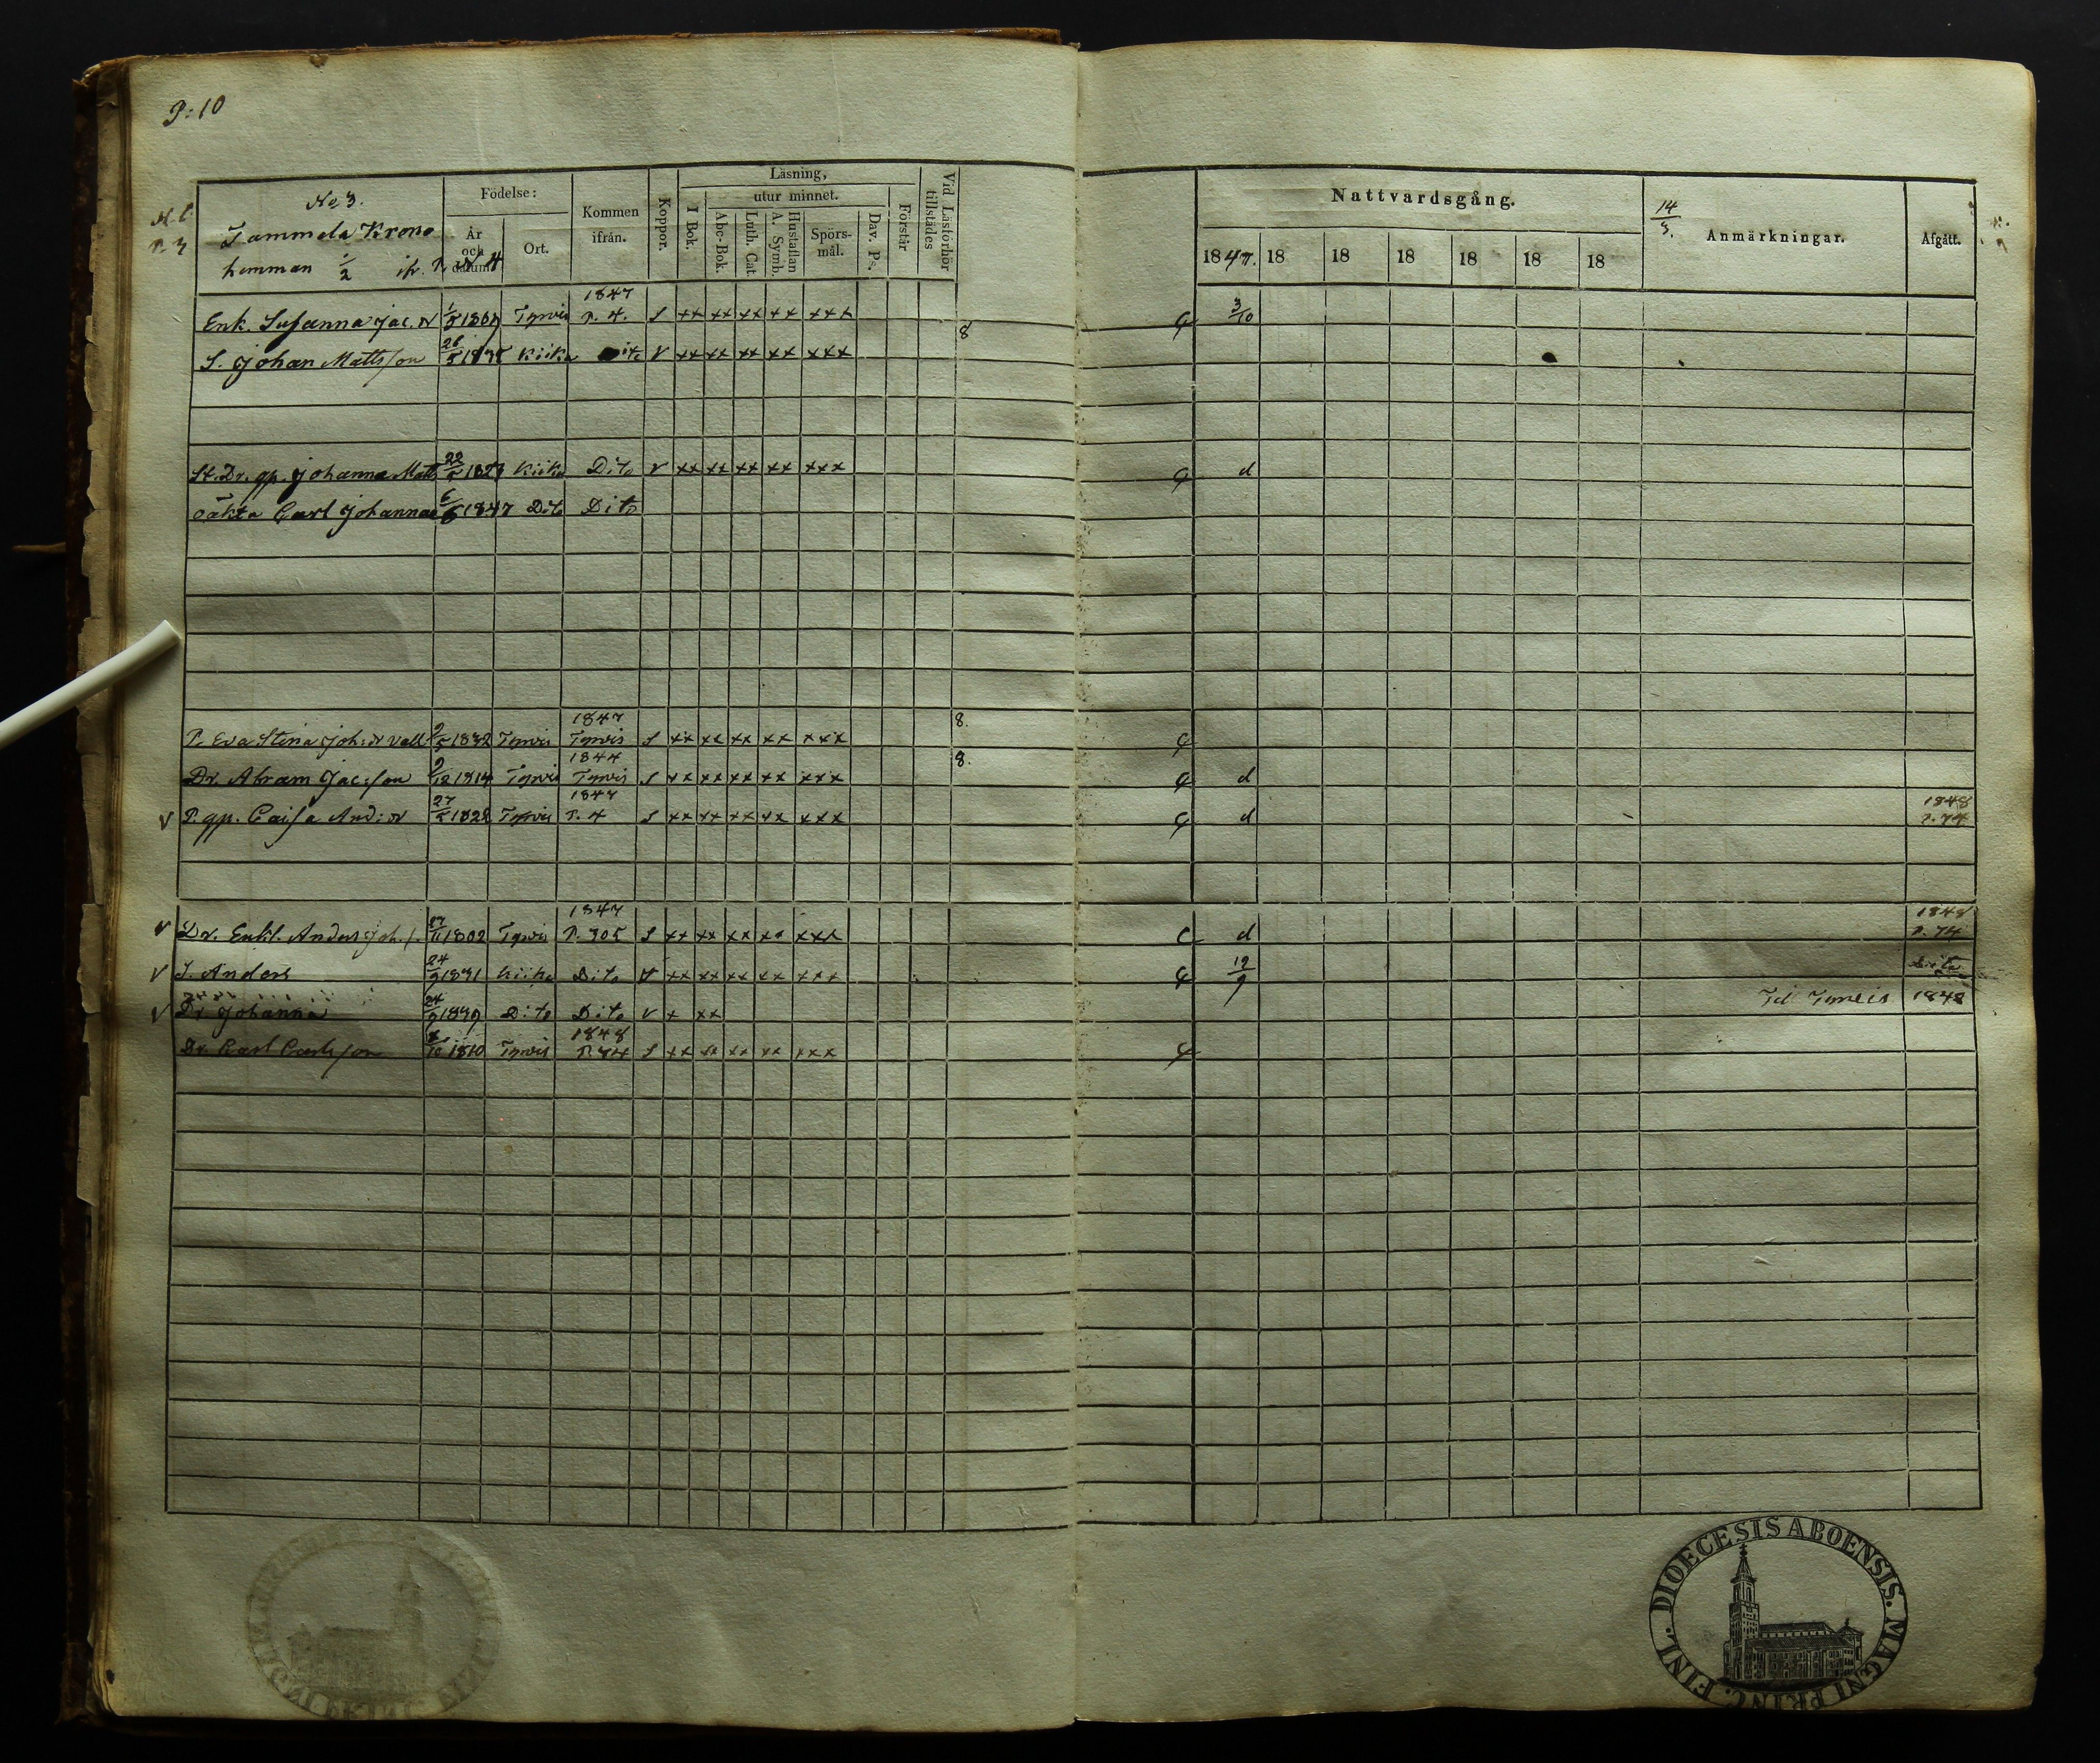 P: 10
No 3.
Tammela Krono
hemman 1/2
Födelse:
År och datum
Ort.
Kommen ifrån.
Koppor.
Läsning,
I Bok.
utur minnet.
Abc-Bok.
Luth. Cat.
Hustaflan
A. Symb.
Spörs-mål.
Dav. Ps.
Förstår
Vid Läsförhör tillstädes
Nattvardsgång.
1847. 18 18 18 18 18 18
14/3.
Anmärkningar.
Afgått.
1847
Enk. Susanna Jac. Tyrvis P. 4. S xx xx xx xx xxx 3/10
8
S. Johan Mattsson 26/5 1835 Kiika Dito V xx xx xx xx xxx
St. Dr. gp. Johanna Matts 22/5 1823 Kiika Dito V xx xx xx xx xxx d
oäkta Carl Johannae 6/6 1847 Dito Dito
1847 8.
P. Eva Stina Joh: 1832 Tyrvis Tyrvis S xx xx xx xx xxx
1844 8.
Dr. Abram Jac:son 9/12 1814 Tyrvis Tyrvis S xx xx xx xx xxx d
1847 1848
V P. gp. Caisa And: 27/5 1828 Tyrvis P. 4 S xx xx xx xx xxx d P. 74
1847 1848
V Dr. Enkl. Anders Joh. 1802 Tyrvis P. 305 S xx xx xx xx xxx d P. 74
V S. Anders 24/9 1831 Kiika Dito V xx xx xx xx xxx 19/9 Dito
V Dr Johanna 24/9 1839 Dito Dito V x xx Till Tyrvis 1848
1848
Dr. Carl Carlsson 1810 Tyrvis P. 74 S xx xx xx xx xxx
DIOECESIS ABOENSIS. MAGNI PRINC. FINL.